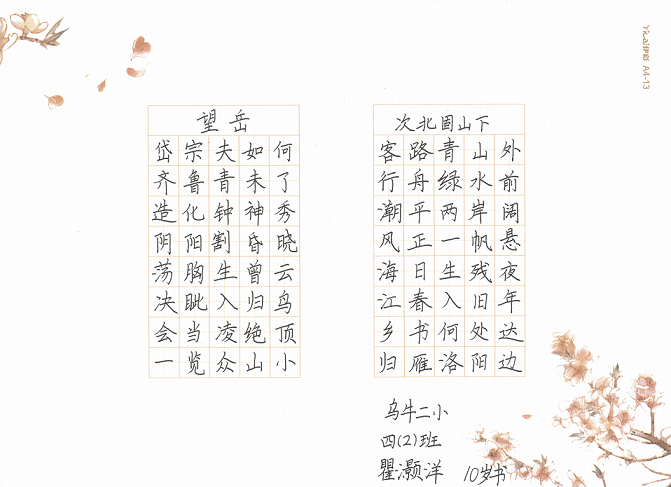 望岳
岱宗夫如何
齐鲁青未了
造化钟神秀
阴阳割昏晓
荡胸生曾云
决眦入归鸟
会当凌绝顶
一览众山小
次北固山下
客路青山外
行舟绿水前
潮平两岸阔
风正一帆悬
海日生残夜
江春入旧年
乡书何处达
归雁洛阳边
乌牛二小
四(2)班
瞿灏洋 10岁书
A4-13